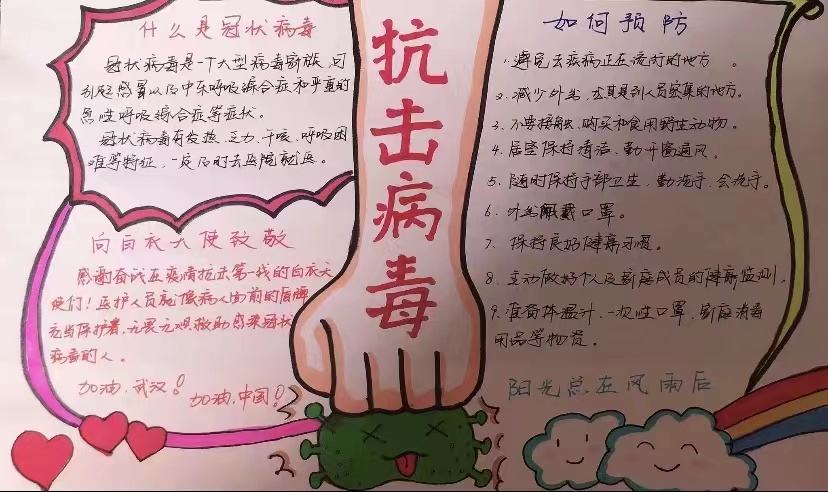 什么是冠状病毒
冠状病毒是一个大型病毒家族,可
引起感冒以及中东呼吸综合症和严重的
急性呼吸综合症等症状。
冠状病毒有发热、乏力、干咳、呼吸困
难等特征,一定及时去医院就医。
向白衣天使致敬
感谢奋战在疫情抗击第一线的白衣天
使们!医护人员就像病人面前的盾牌
充当保护着,无畏无艰救助感染冠状
病毒的人。
加油,武汉!
加油,中国!
抗击病毒
如何预防
1.避免去疾病正在流行的地方。
2.减少外出,尤其是到人员密集的地方。
3.不要接触、购买和食用野生动物。
4.居室保持清洁,勤开窗通风。
5.随时保持手部卫生,勤洗手,会洗手。
6.外出佩戴口罩。
7.保持良好健康习惯。
8.主动做好个人及家庭成员的健康监测。
9.准备体温计、一次性口罩、家庭消毒
用品等物资。
阳光总在风雨后